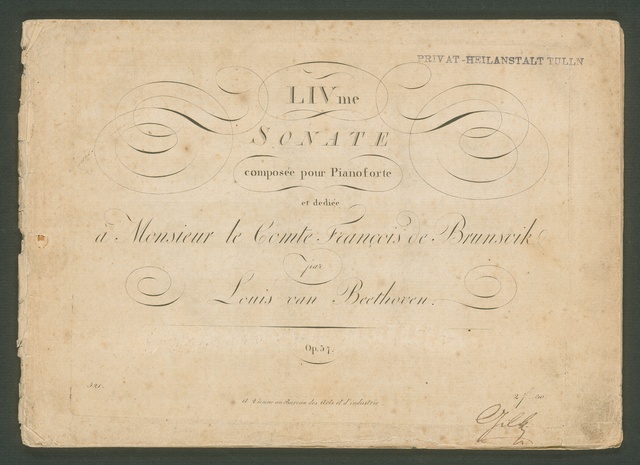 PRIVAT-HEILANSTALT TULLN
LIVme
SONATE
composée pour Pianoforte
et dediée
à Monsieur le Comte François de Brunsvik
par
Louis van Beethoven.
Op. 57.
A Vienne au Bureau des Arts et d'industrie